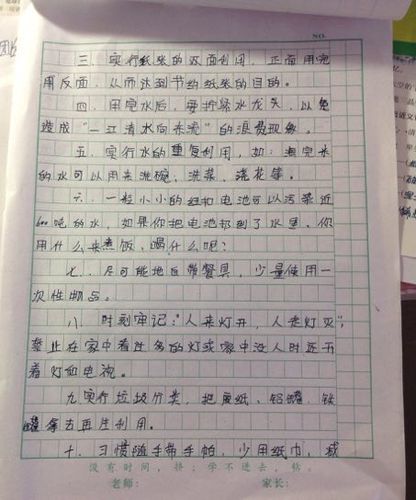 NO.
三、实行纸张的双面利用，正面用完
用反面，从而达到节约纸张的目的。
四、用完水后，要拧紧水龙头，以免
造成“一江清水向东流”的浪费现象。
五、实行水的重复利用，如：淘完米
的水可以用来洗碗、洗菜、浇花等。
六、一粒小小的纽扣电池可以污染近
600吨的水，如果你把电池扔到了水里，你
用什么来煮饭，喝什么呢？
七、尽可能地自带餐具，少量使用一
次性物品。
八、时刻牢记：“人来灯开，人走灯灭”，
禁止在家中着过多的灯或家中没人时还开
着灯和电视。
九实行垃圾分类，把废纸、铝罐、铁
罐拿去再生利用。
十、习惯随手带手帕，少用纸巾，减
没有时间，挤；学不进去，钻。
老师： 家长：